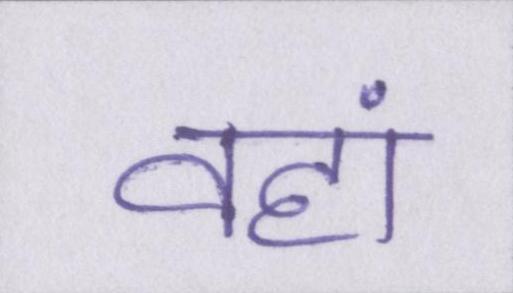 वहां